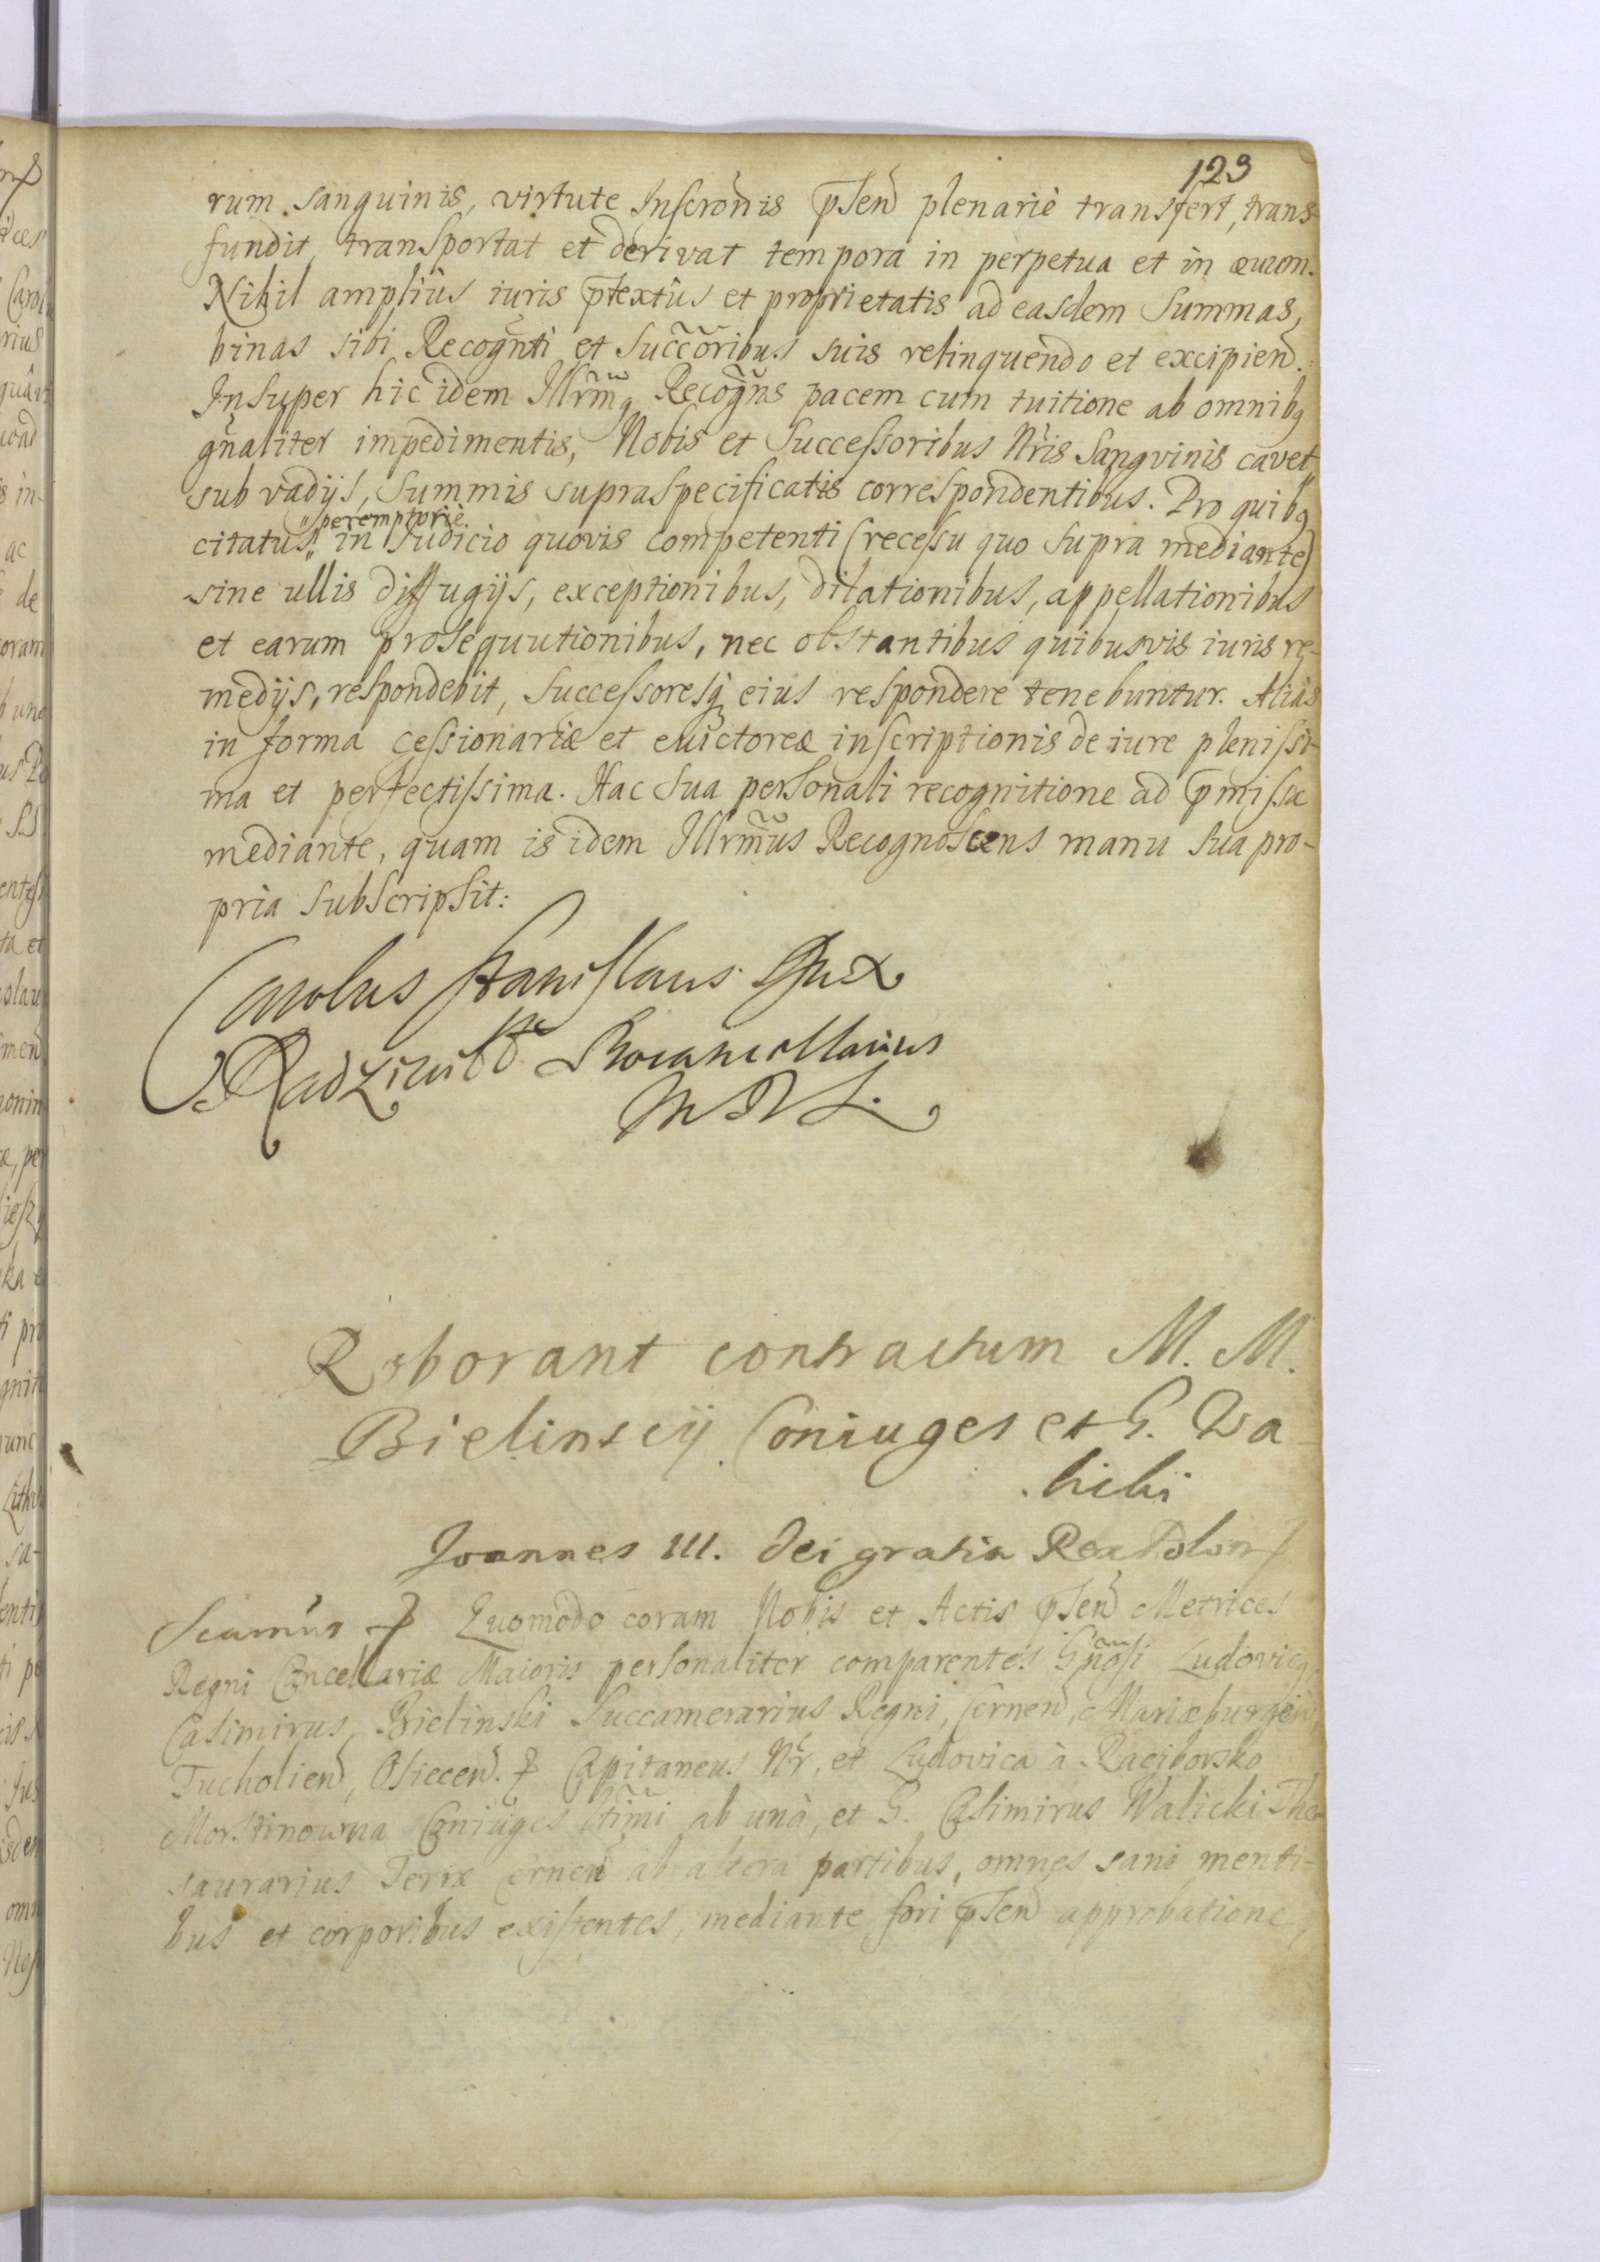 123
rum sanguinis, virtute Inscrōnis p̄sen̄ plenariè transfert, trans-
fundit, transportat et derivat tempora in perpetua et in ævum.
Nihil ampliùs iuris p̄textûs et proprietatis ad easdem Summas,
binas sibi Recogn̄ti et Succc̄oribus suis relinquendo et excipien̄.
Insuper hic idem Illrm̄q Recogn̄s pacem cum tuitione ab omnibq
gn̄aliter impedimentis, Nobis et Successoribus Nr̄is Sangvinis cavet
sub vadijs, Summis supraspecificatis correspondentibus. Pro quibq
peremptoriè
citatus, in Iudicio quovis competenti (recessu quo supra mediante)
sine ullis diffugijs, exceptionibus, dilationibus, appellationibus
et earum prosequutionibus, nec obstantibus quibusvis iuris re-
medijs, respondebit, Successoresq eius respondere tenebuntur. Alias
in forma cessionariæ et evictoreæ inscriptionis de iure plenissi-
ma et perfectissima. Hac Sua personali recognitione ad p̄missa
mediante, quam is idem Illrm̄us Recognoscens manu Sua pro-
pria subscripsit:
Carolus Stanislaus Dux
Radziwił Procancellarius
M D L.
Roborant contractum M. M.
Bielinscij Coniuges et G. Wa-
licki
Joannes III. Dei gratia Rex Polon
Scimus Quomodo coram Nobis et Actis p̄sen̄ Metrices
Regni Cancellariæ Maioris personaliter comparentes Gn̄osi Ludovicq
Casimirus Bielinski Succamerarius Regni, Cernen̄, Mariæburgen̄,
Tucholien̄, Osiecen̄. Capitaneus Nr̄, et Ludovica à Raciborsko
Morstinowna Coniuges ltim̄i ab unà, et G. Casimirus Walicki The-
saurarius Terræ Cernen̄ ab altera partibus, omnes sani menti-
bus et corporibus existentes, mediante fori p̄sen̄ approbatione,